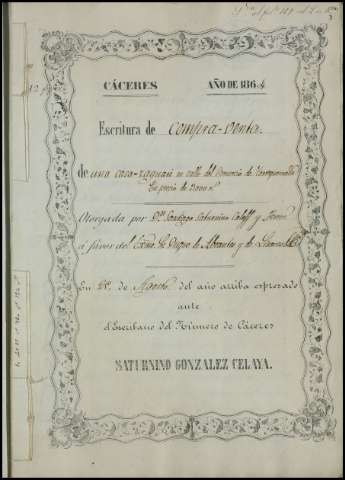 CÁCERES AÑO DE 1864
Escritura de Compra-Venta
de una casa-zaguan en calle del Comercio de
En precio de
Otorgada por Dn. Santiago Saturnino y
á favor del Excmo. Sr. Duque de Abrantes y de Linares
En de Agosto del año arriba espresado
ante
el Escribano del Número de Cáceres
SATURNINO GONZALEZ CELAYA.